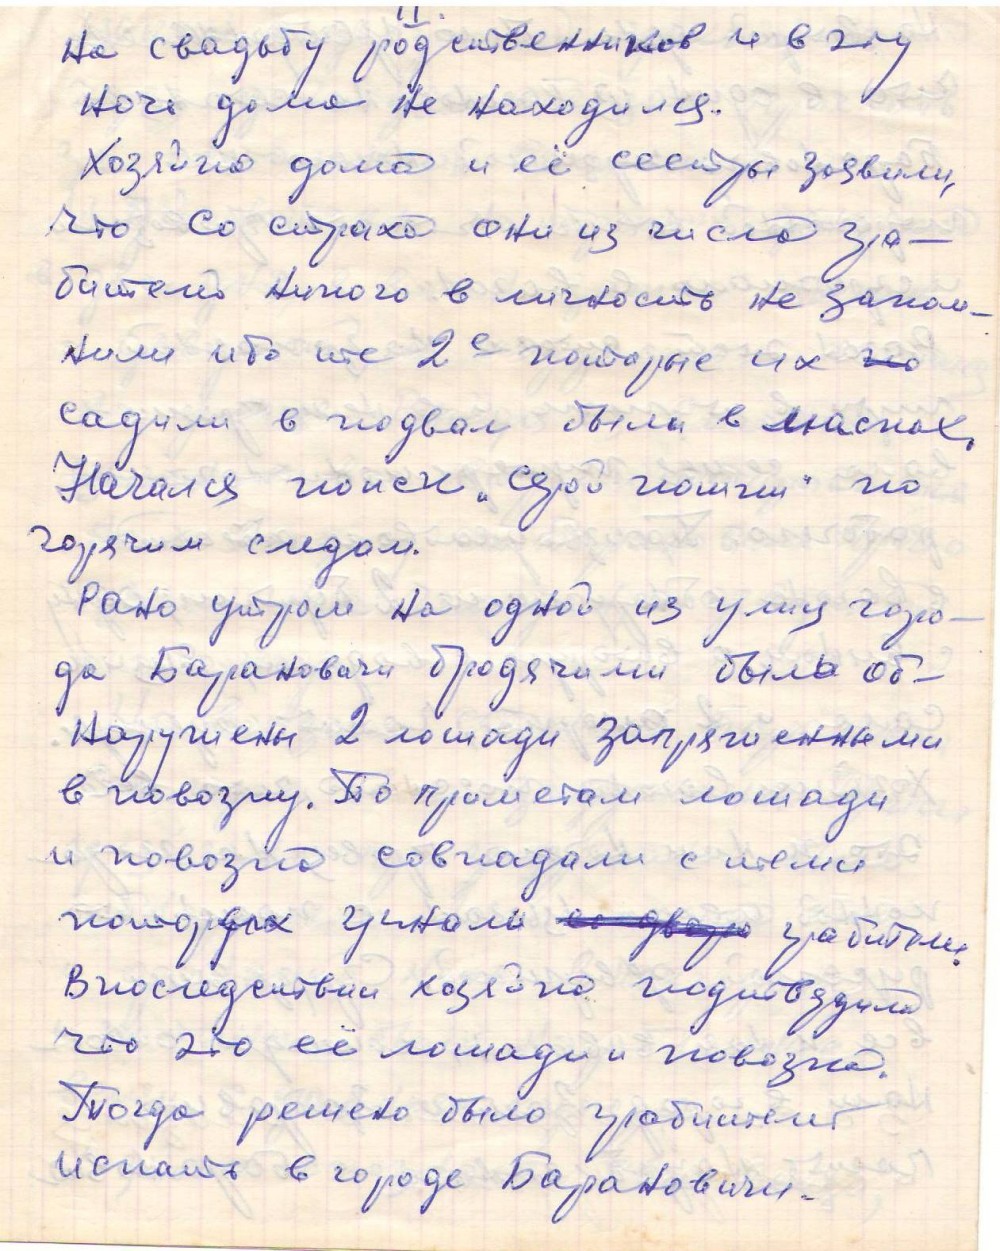 11.
на свадьбу родственников и в эту
ночь дома не находился.
Хозяйка дома и её сестры заявили,
что со страха они из числа гра-
бителей никого в личность не запом-
нили ибо те 2е которые их по
садили в подвал были в масках.
Начался поиск „серой кошки" по
горячим следам.
Рано утром на одной из улиц горо-
да Барановичи бродячими были об-
наружены 2 лошади запряженными
в повозку. По приметам лошади
и повозка совпадали с теми
которых угнали со двора грабители.
Впоследствии хозяйка подтвердила
что это её лошади и повозка.
Тогда решено было грабителей
искать в городе Барановичи.